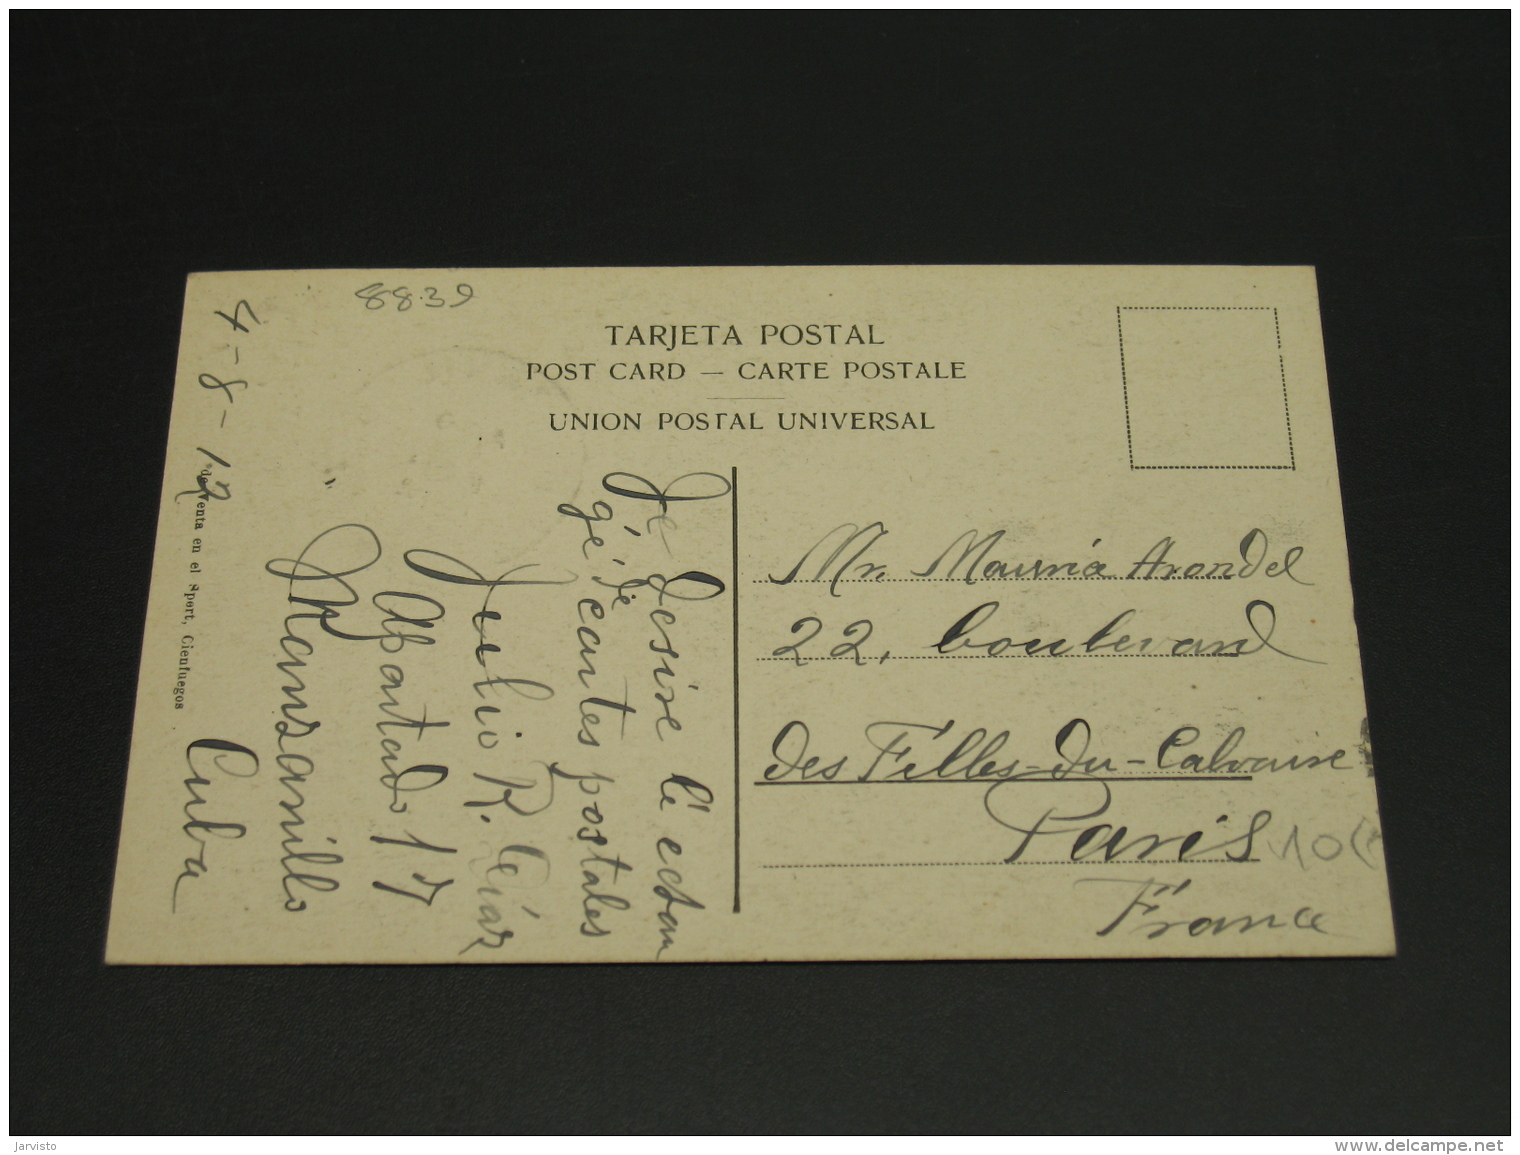 8839
TARJETA POSTAL
POST CARD — CARTE POSTALE
UNION POSTAL UNIVERSAL
4-8-12
Je desire l'é ectan
gé, de
cartes postales
Julio R.
17
Manzanillo
Cuba
de venta en el Sport, Cienfuegos
Mr. Arondel
22, boulevard
des Filles-du-Calvaire
Paris
France
10
jarvisto
www.delcampe.net